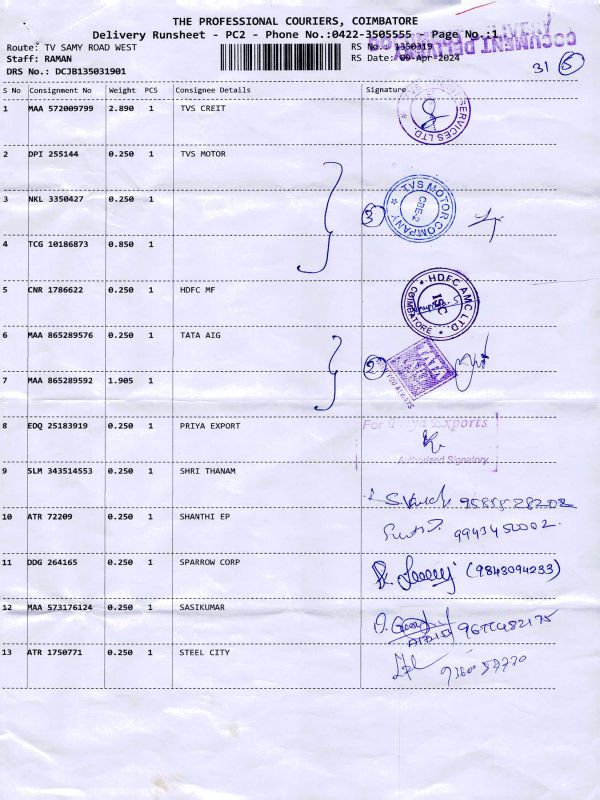 THE PROFESSIONAL COURIERS, COIMBATORE
Delivery Runsheet - PC2 - Phone No.:0422-3505555 - Page No.:1
Route: TV SAMY ROAD WEST RS No.: 1350319
Staff: RAMAN RS Date: 09-Apr-2024
DRS No.: DCJB135031901
DOCUMENT DELIVERY
31 5
S No Consignment No Weight PCS Consignee Details Signature
1 MAA 572009799 2.890 1 TVS CREIT
SERVICES LTD
2 DPI 255144 0.250 1 TVS MOTOR
3 NKL 3350427 0.250 1
3 TVS MOTOR COMPANY CBE-2
4 TCG 10186873 0.850 1
5 CNR 1786622 0.250 1 HDFC MF
HDFC AMC LTD. ISC COIMBATORE
6 MAA 865289576 0.250 1 TATA AIG
2 TATA
YOU ALWAYS
7 MAA 865289592 1.905 1
8 EDQ 25183919 0.250 1 PRIYA EXPORT
For Priya Exports
Authorised Signatory
9 SLM 343514553 0.250 1 SHRI THANAM
10 ATR 72209 0.250 1 SHANTHI EP
9943450002
11 DDG 264165 0.250 1 SPARROW CORP
(9843094233)
12 MAA 573176124 0.250 1 SASIKUMAR
13 ATR 1750771 0.250 1 STEEL CITY